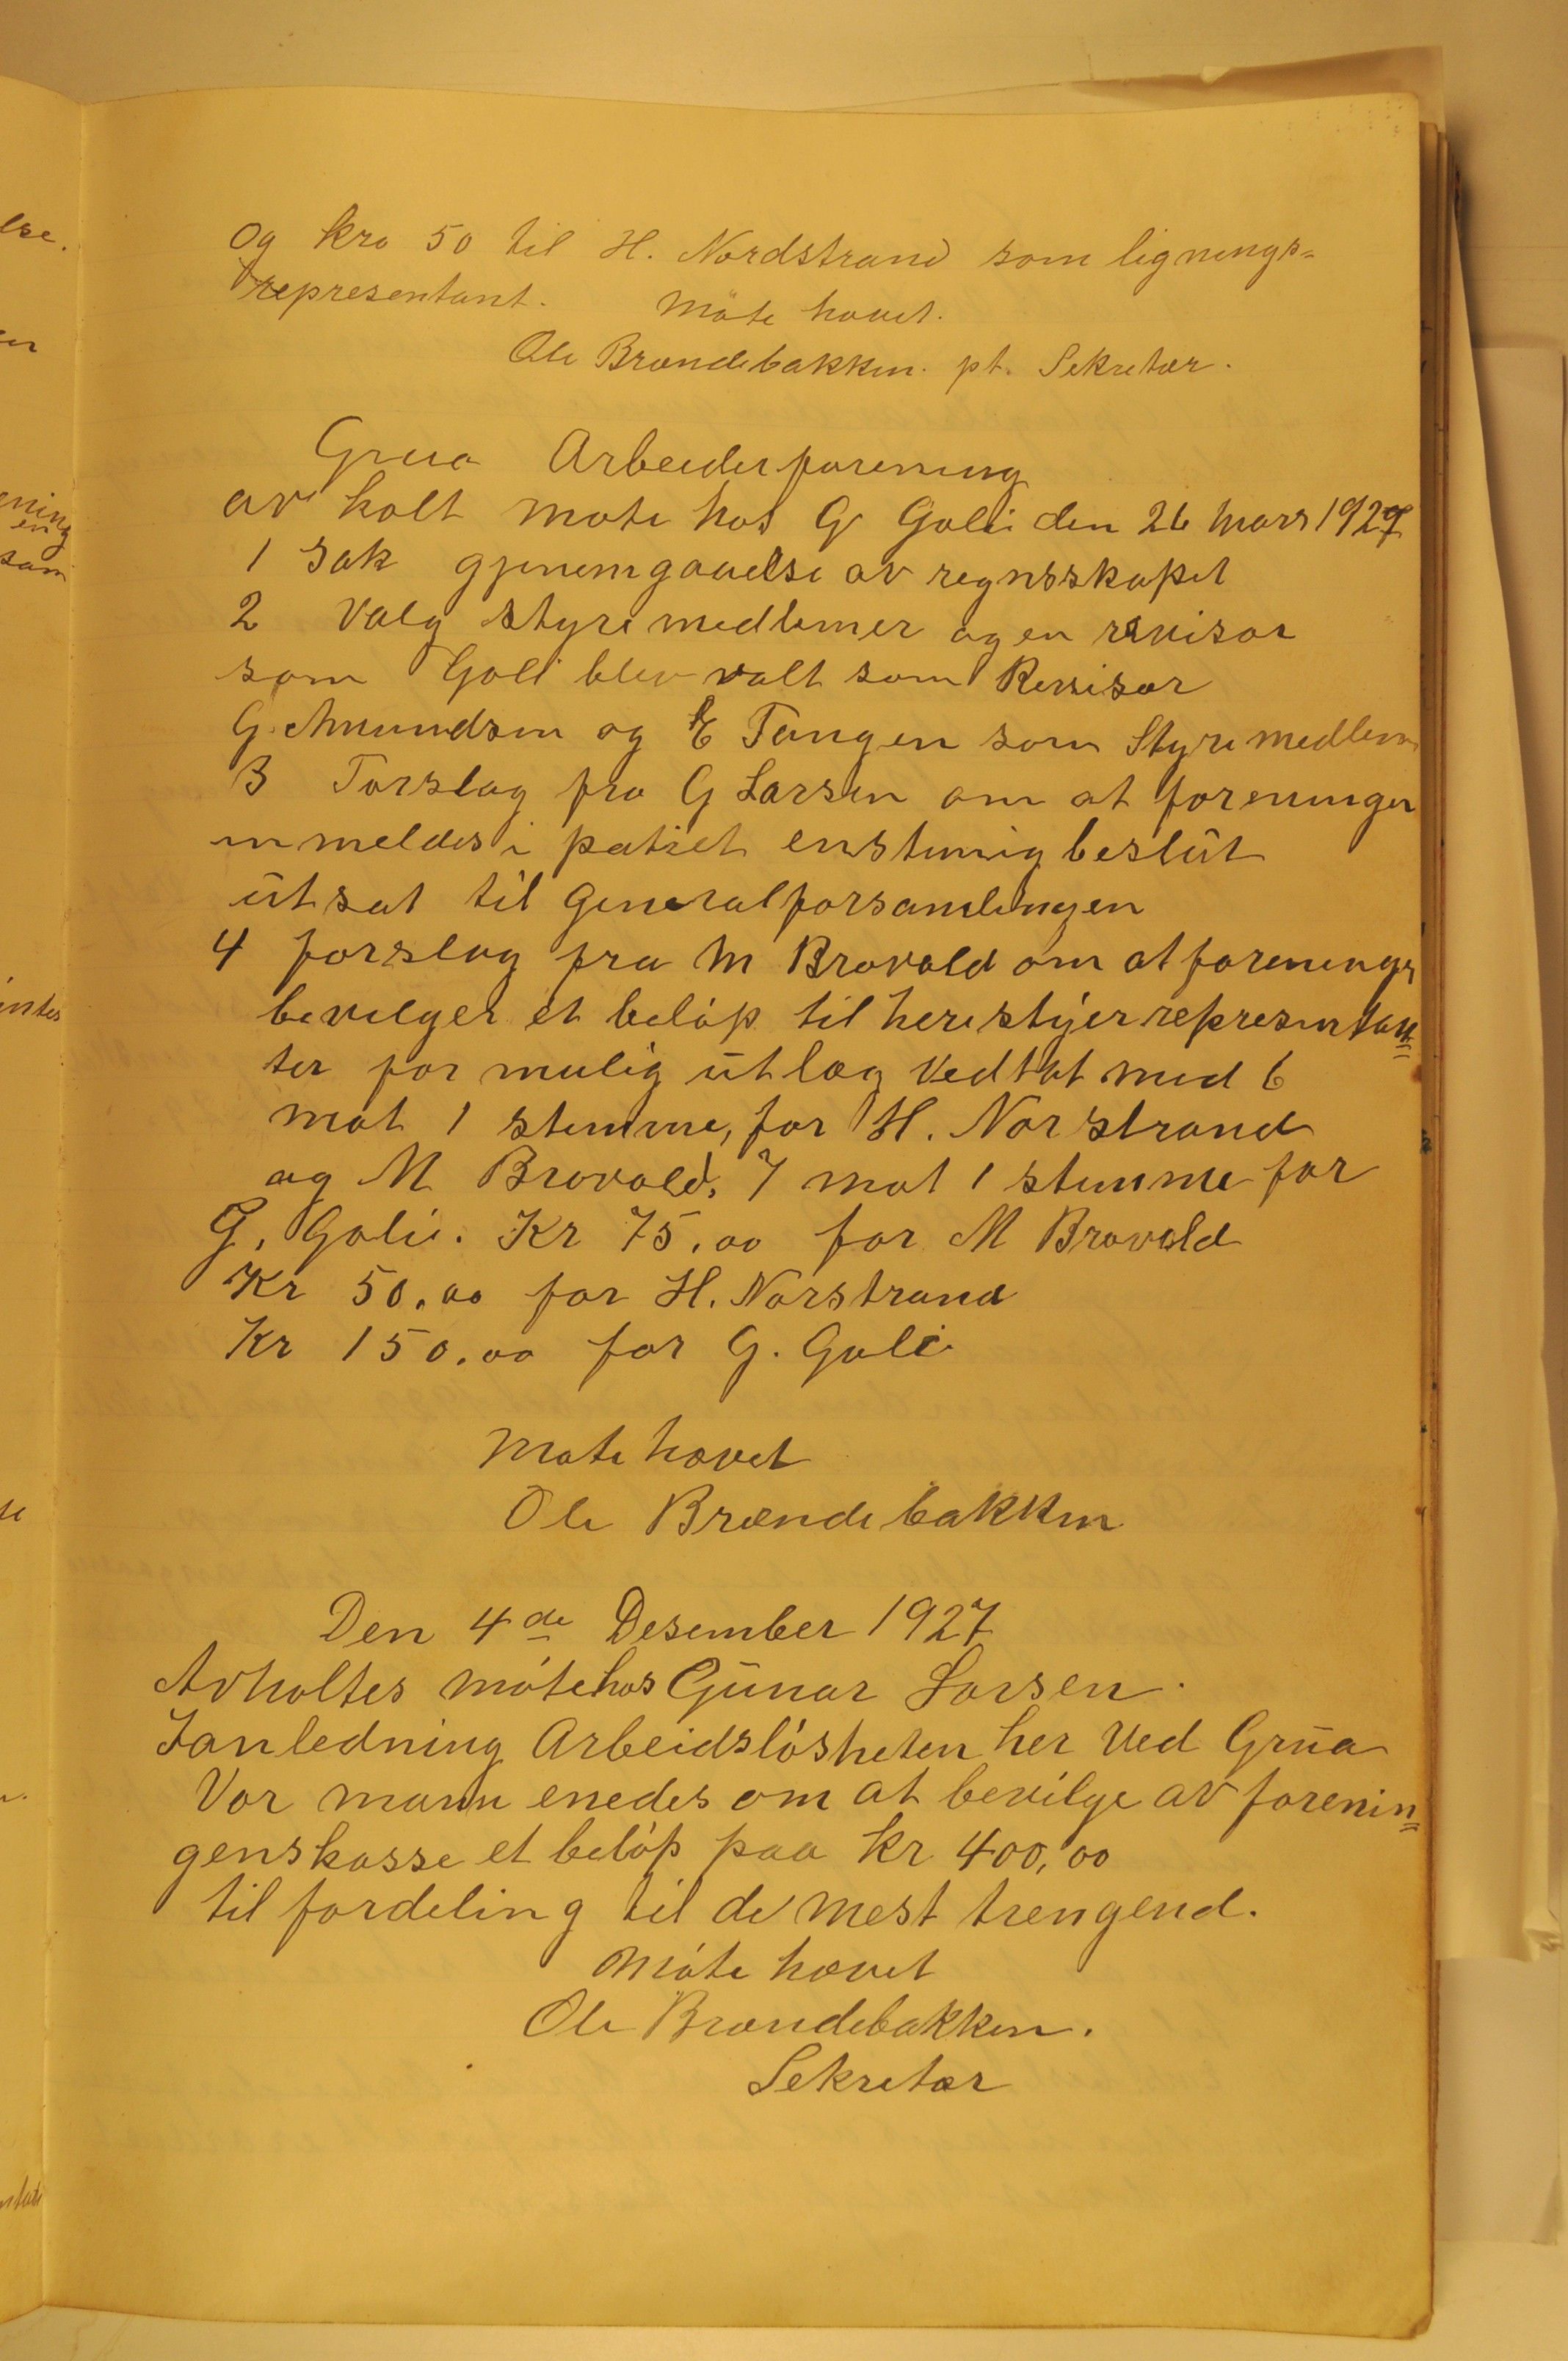 Og kro 50 til H. Nordstrand som lignings=
representant. Møte hævet.
Ole Brændebakken. pt. Sekretær.
Grua Arbeiderforening
av holt møte hos G Galei den 26 Mars 1927
1 Sak gjenemgaaelse av regnsskapet
2 Valg styremedlemer og en revisor
som Goli blev valt som Revisor
G. Amundsen og E Tangen som Styremedlem
3 Forslag fra G Larsen om at foreningen
inmeldes i patiet enstemig beslut
utsat til Generalforsamlingen
4 forslag fra M Brovold om at foreninger
bevilger et beløp til heristyerrepresentan=
ter for mulig utlæg Vedtat med 6
mot 1 stemme, for H. Norstrand
og M Brovold, 7 mot 1 stemme for
G. Galei. Kr 75.00 for M Brovold
Kr 50.00 for H. Norstrand
Kr 150.00 for G. Galei
Møte hævet
Ole Brændebakken
Den 4de Desember 1927
Avholtes møte hos Gunar Larsen.
I anledning Arbeidsløsheten her Ved Grua
Vor mann enedes om at bevilge av forenin=
genskasse et beløp paa kr 400,00
til fordeling til de mest trengend.
Møte hævet
Ole Brændebakken.
Sekretær